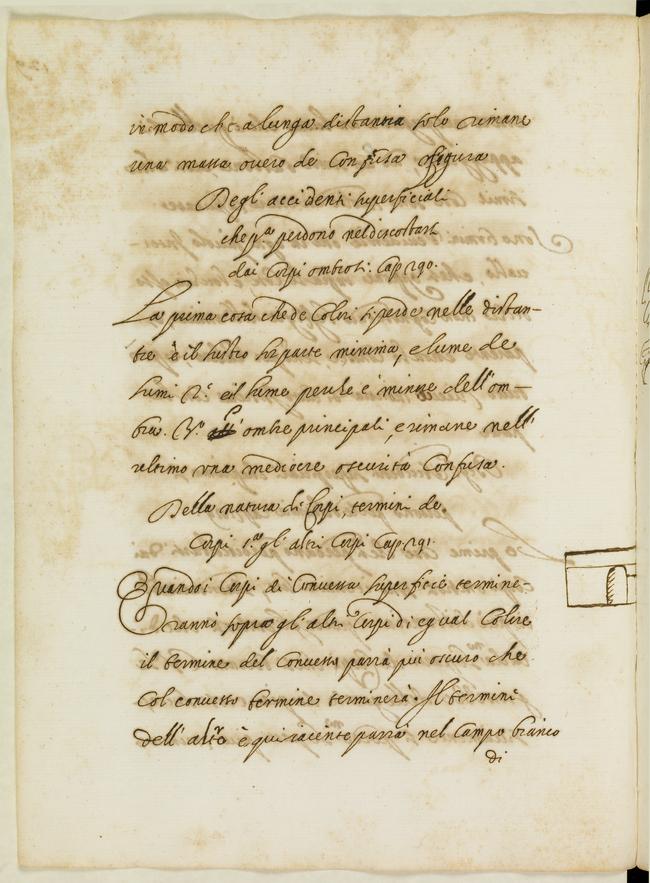 in modo che a lunga distantia solo rimane
una massa overo de Confusa figura
Degl'accidenti superficiali
che p.ª perdono nel discostarsi
dai Corpi ombrosi. Cap 290.
La prima cosa che de Colori si perde nelle distan-
tie è il lustro lor parte minima, e lume de
lumi 2.º è il lume perche è minore dell'om-
bra. 3.º l'ombre principali, e rimane nell'
ultimo una mediocre oscurità Confusa.
Della natura di Corpi, termini de
Corpi s.ª gl'altri Corpi Cap 291.
Quando i Corpi di Convessa superficie termine-
ranno sopra gl'altri Corpi di egual Colore
il termine del Convesso parrà più oscuro che
Col convesso termine terminerà. Il termine
dell' è quiiacente parrà nel Campo bianco
di